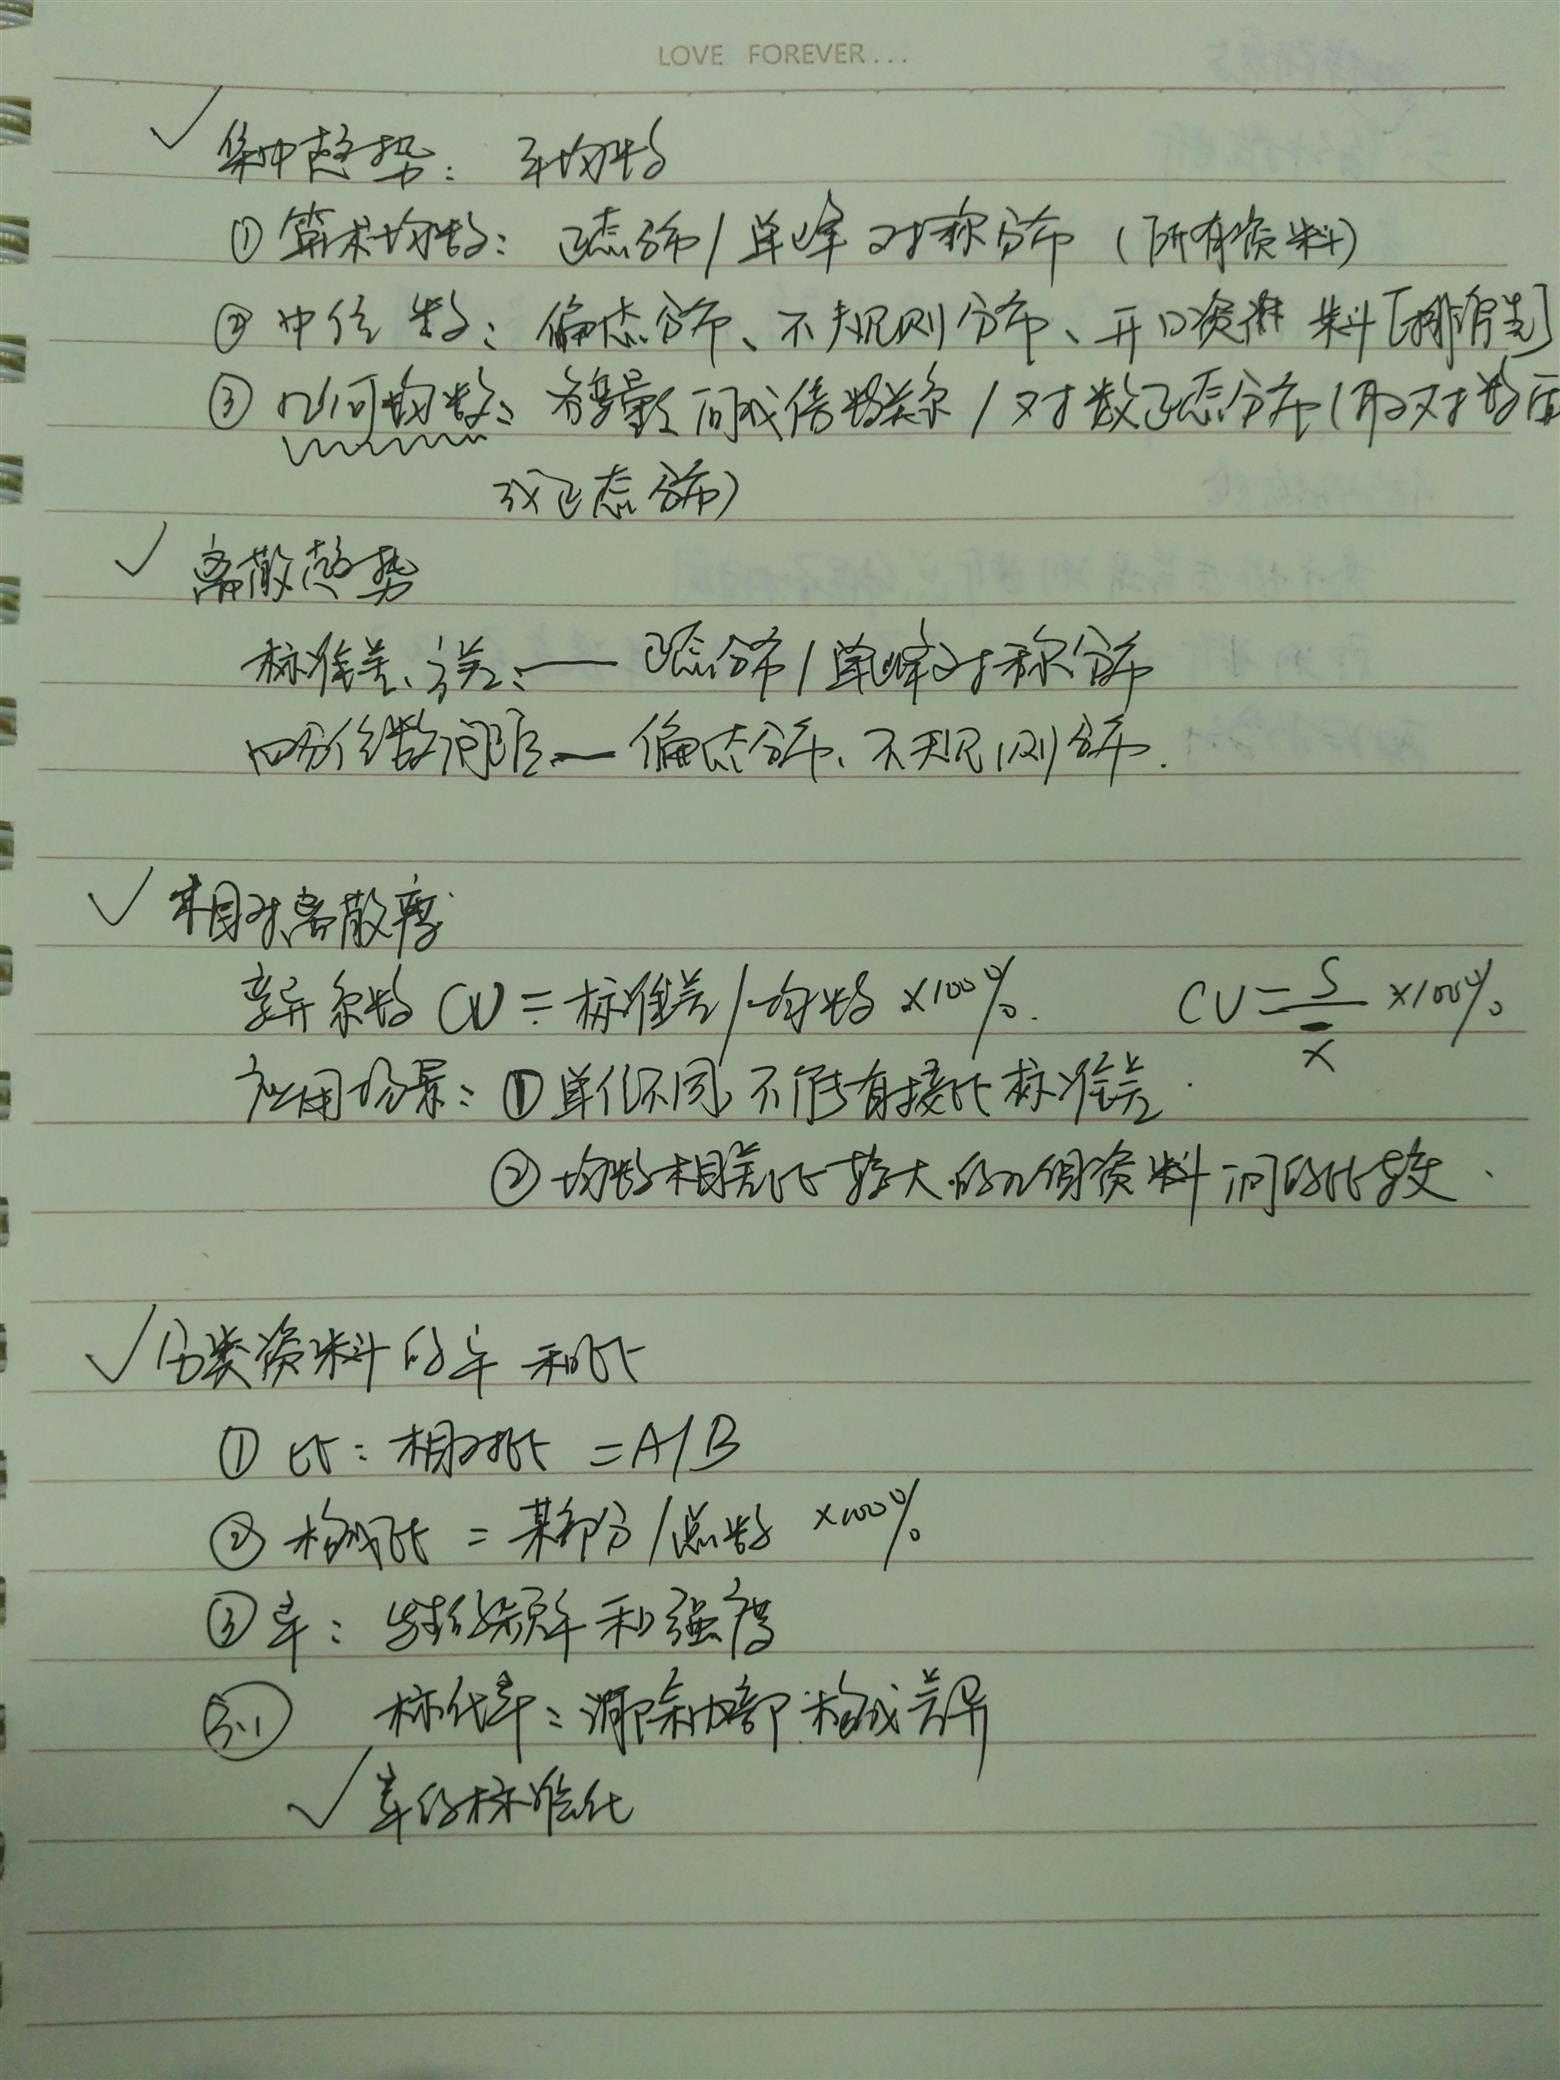 LOVE FOREVER...
集中趋势：平均数
① 算术均数：正态分布/单峰对称分布（所有资料）
② 中位数：偏态分布、不规则分布、开口资料[排序先]
③ 几何均数：各变量间成倍数关系/对数正态分布（取对数后
或正态分布）
离散趋势
标准差、方差：—— 正态分布/单峰对称分布
四分位数间距 — 偏态分布、不规则分布.
相对离散度
变异系数 CV = 标准差/均数 ×100%. CV = S/x̄ ×100%
应用场景：① 单位不同，不能直接比标准差.
② 均数相差比较大的几个资料间的比较.
分类资料的率和比
① 比：相对比 = A/B
② 构成比 = 某部分/总数 ×100%
③ 率：发生的频率和强度
3.1 标化率：消除内部构成差异
率的标准化